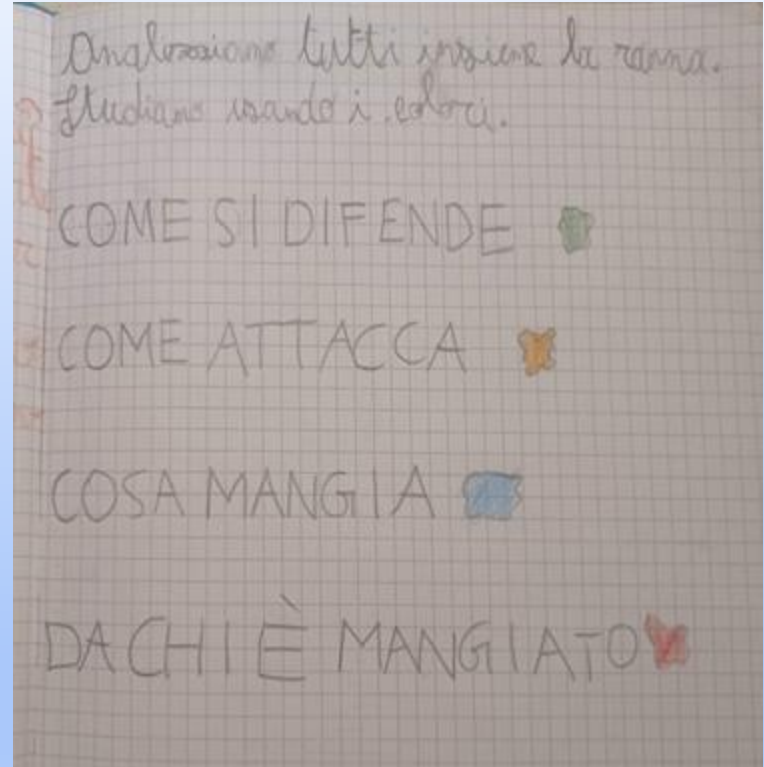 Analizziamo tutti insieme la ranna.
Studiano usando i colori.
COME SI DIFENDE
COME ATTACCA
COSA MANGIA
DA CHI È MANGIATO